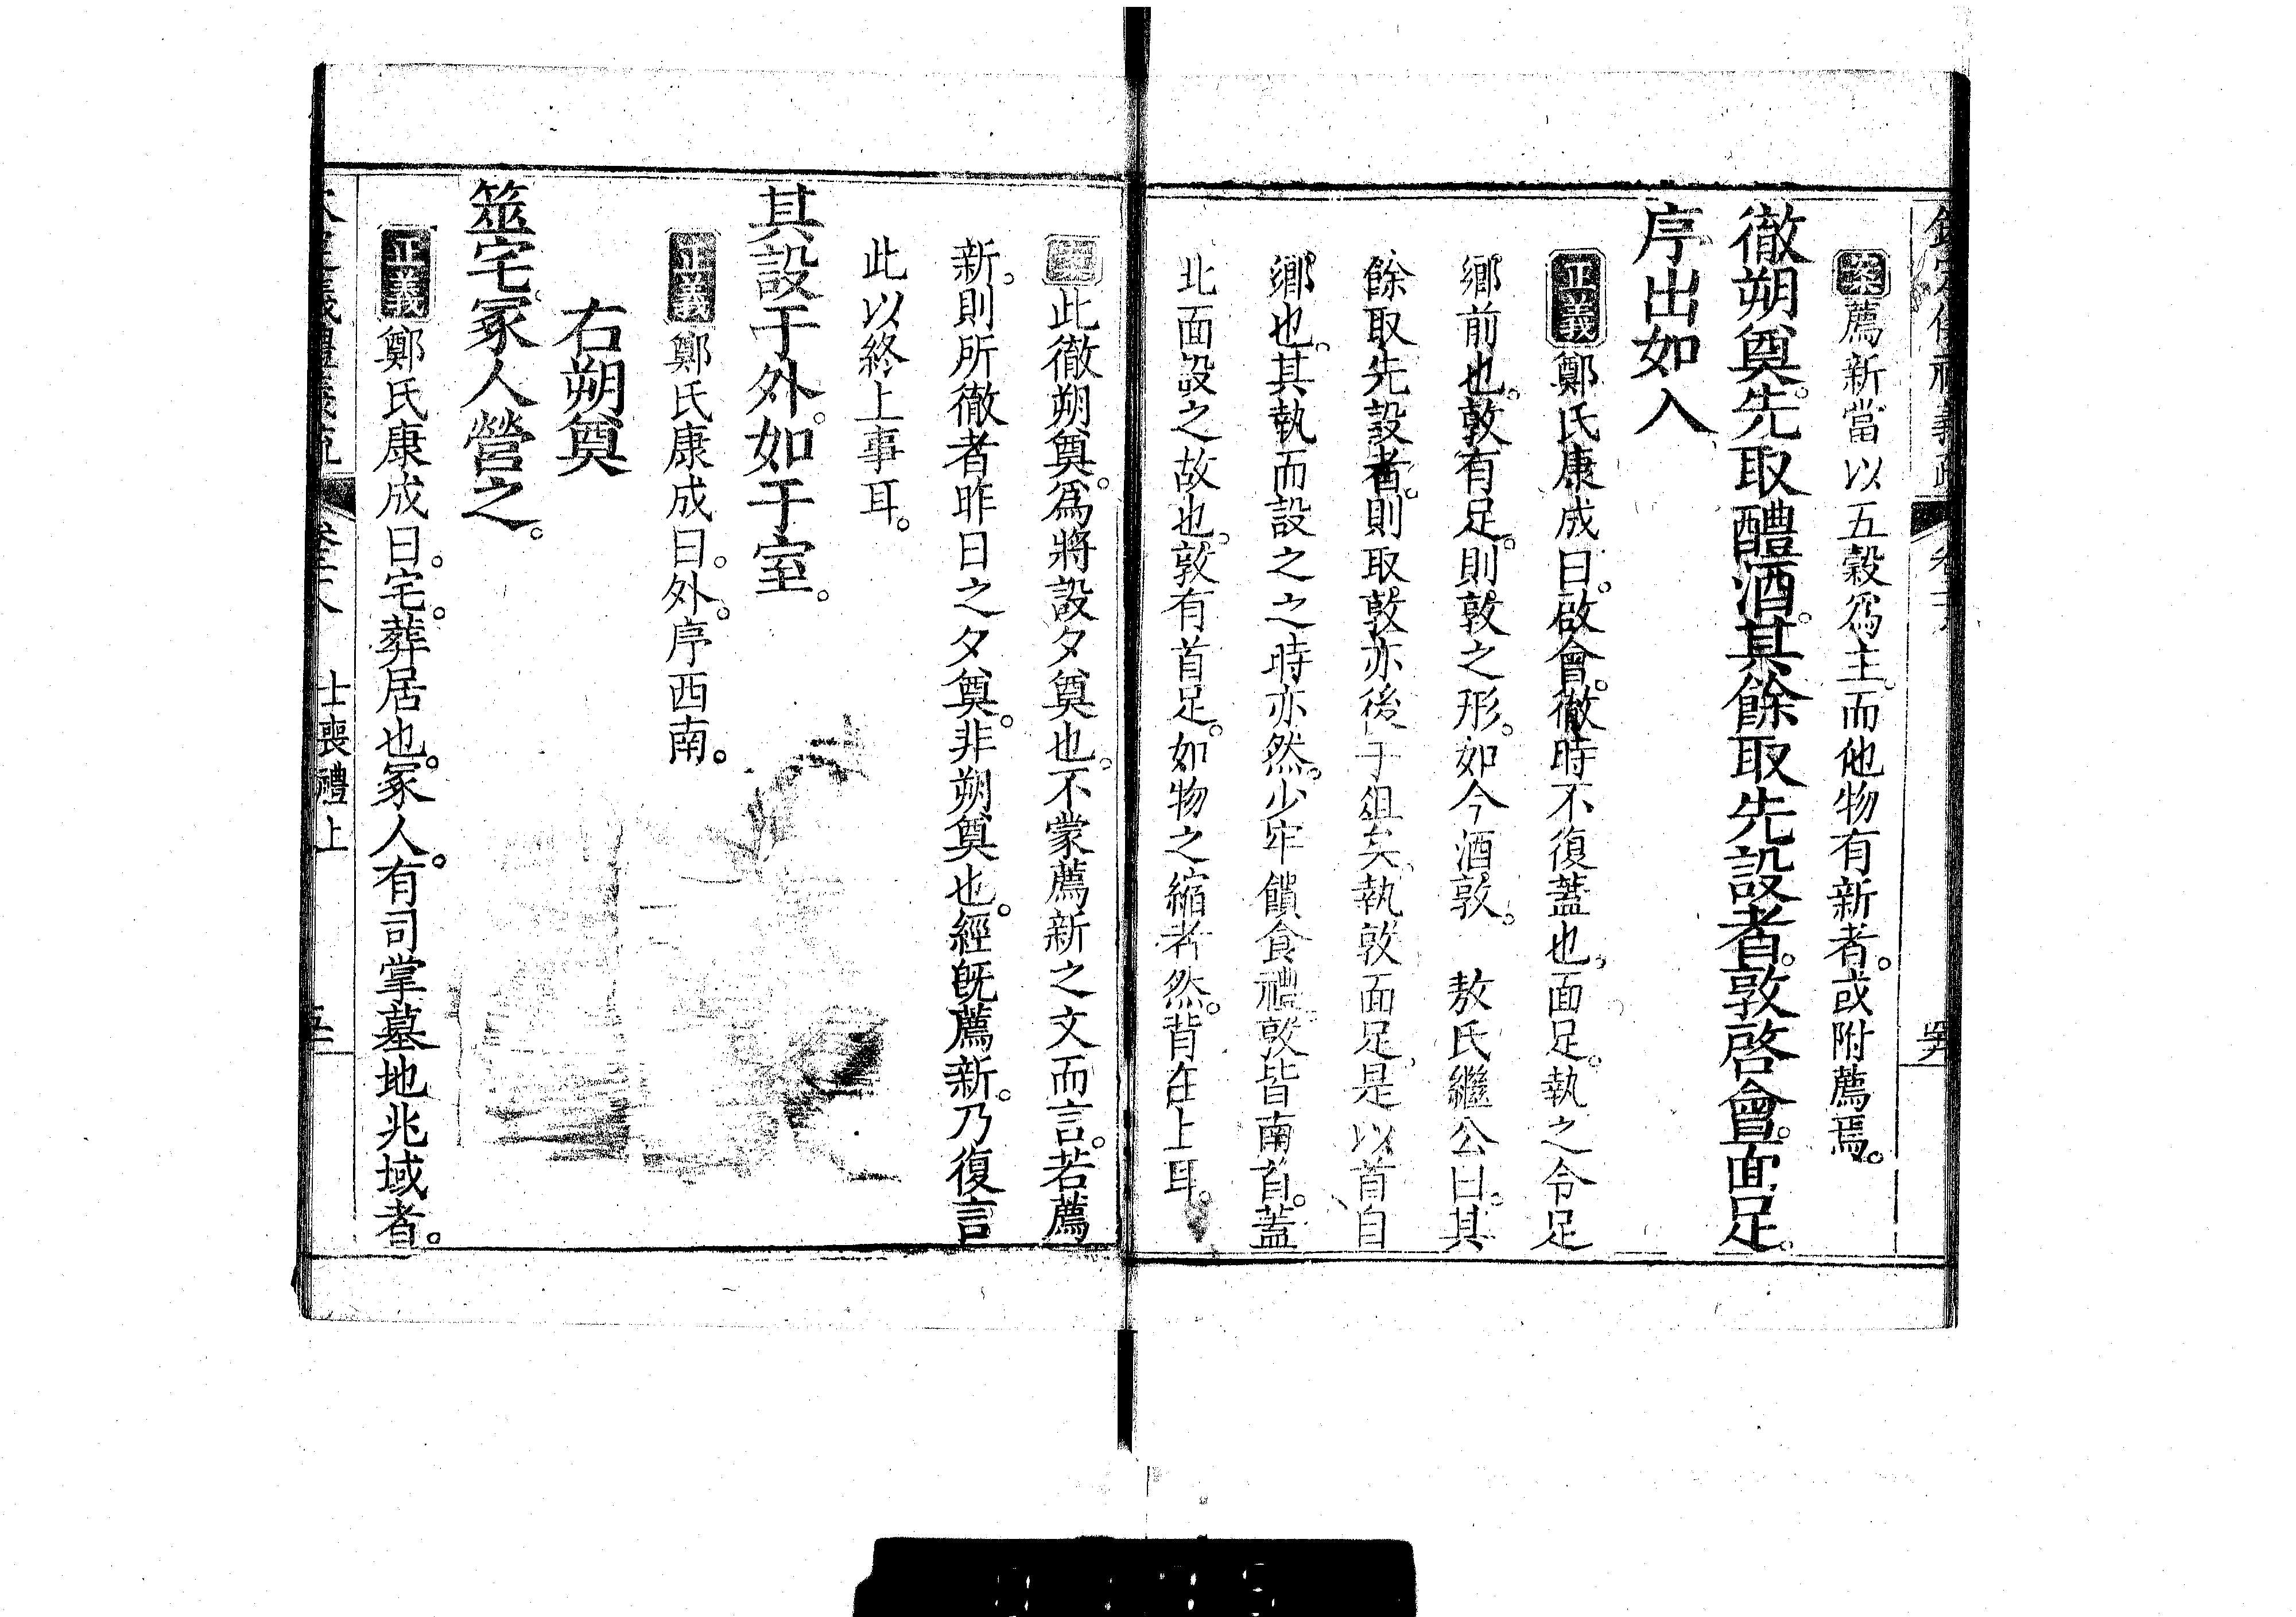 案薦新當以五穀爲主而他物有新者。或附薦焉。
徹朔奠。先取醴酒。其餘取先設者。敦啓會。面足。
序出如入
正義鄭氏康成曰。啟會。徹時不復蓋也。面足。執之令足
鄉前也。敦有足。則敦之形。如今酒敦。 敖氏繼公曰。其
餘取先設者。則取敦亦後于俎矣。執敦面足。是以首自
鄉也。其執而設之之時亦然。少牢饋食禮。敦皆南首。蓋
北面設之故也。敦有首足。如物之縮者然。背在上耳。
案此徹朔奠。爲將設夕奠也。不蒙薦新之文而言。若薦
新。則所徹者昨日之夕奠。非朔奠也。經旣薦新。乃復言
此以終上事耳。
其設于外。如于室。
正義鄭氏康成曰。外。序西南。
右朔奠
筮宅。冢人營之。
正義鄭氏康成曰。宅。葬居也。冢人。有司掌墓地兆域者。
士喪禮上